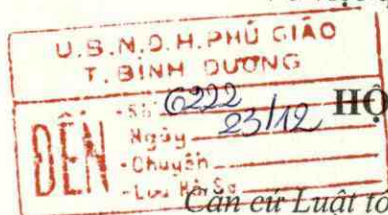 U.B.N.D.H.PHÚ GIÁO
T. BÌNH DƯƠNG
ĐẾN
Số 6222
Ngày 23/12
HỘ
- Chuyển
- Lưu Hồ Sơ
Căn cứ Luật tổ